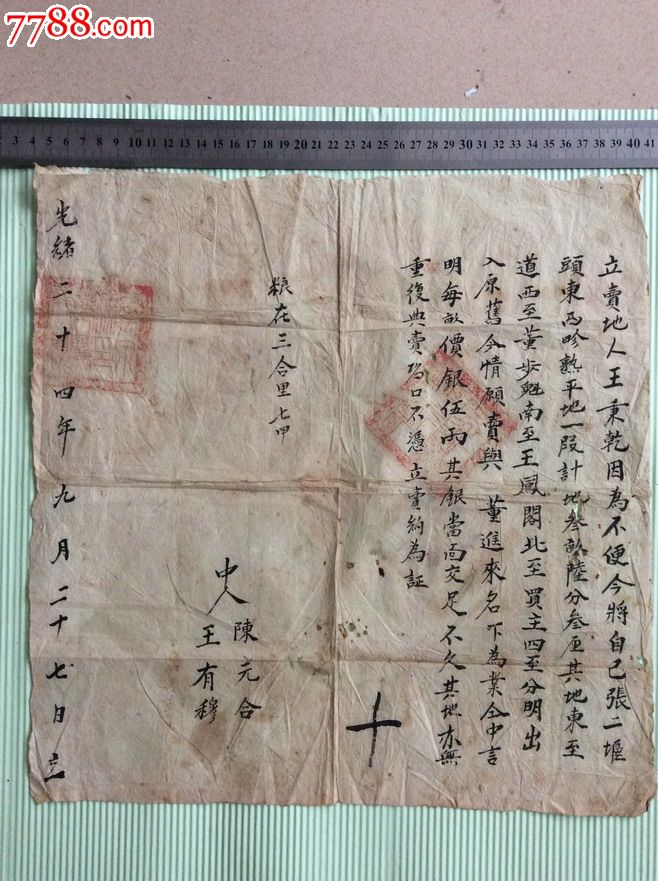 7788.com
3 4 5 6 7 8 9 10 11 12 13 14 15 16 17 18 19 20 21 22 23 24 25 26 27 28 29 30 31 32 33 34 35 36 37 38 39 40 41
立賣地人王秉乾因為不便今將自己張二堰
頭東西畛熟平地一段計地叁畝陸分叁厘其地東至
道西至董步魁南至王鳳閣北至買主四至分明出
入原舊今情願賣與 董進來名下為業仝中言
明每畝價銀伍兩其銀當面交足不欠其地亦無
重復典賣 口不憑立賣約為証
十
粮在三合里七甲
中人 陳元合
王有穆
光緒二十四年九月二十七日立